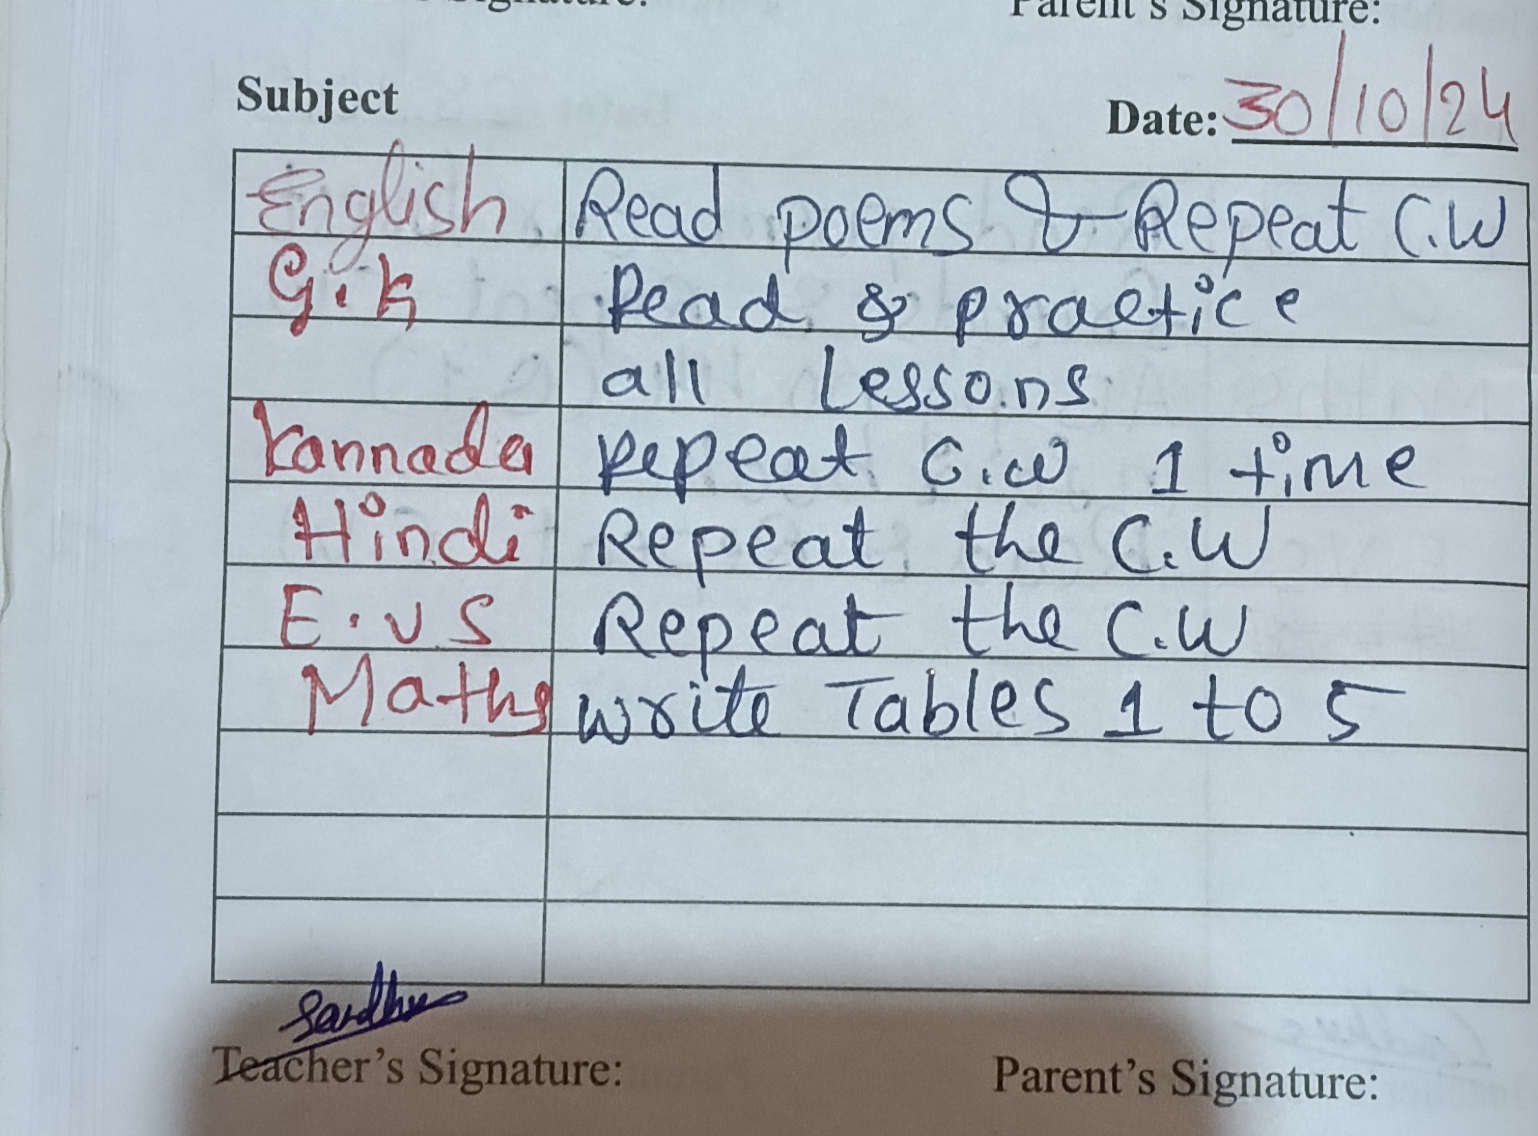 Parent's Signature:
Subject Date: 30/10/24
English Read poems & Repeat C.W
G.K Read & practice
all Lessons
Kannada Repeat C.W 1 time
Hindi Repeat the C.W
E.V S Repeat the C.W
Maths Write Tables 1 to 5
Teacher's Signature: Parent's Signature: